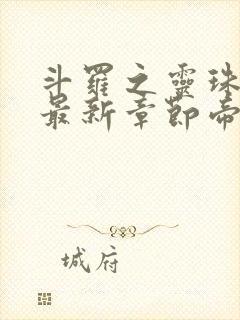 斗羅之靈珠
最新章節帝
城府